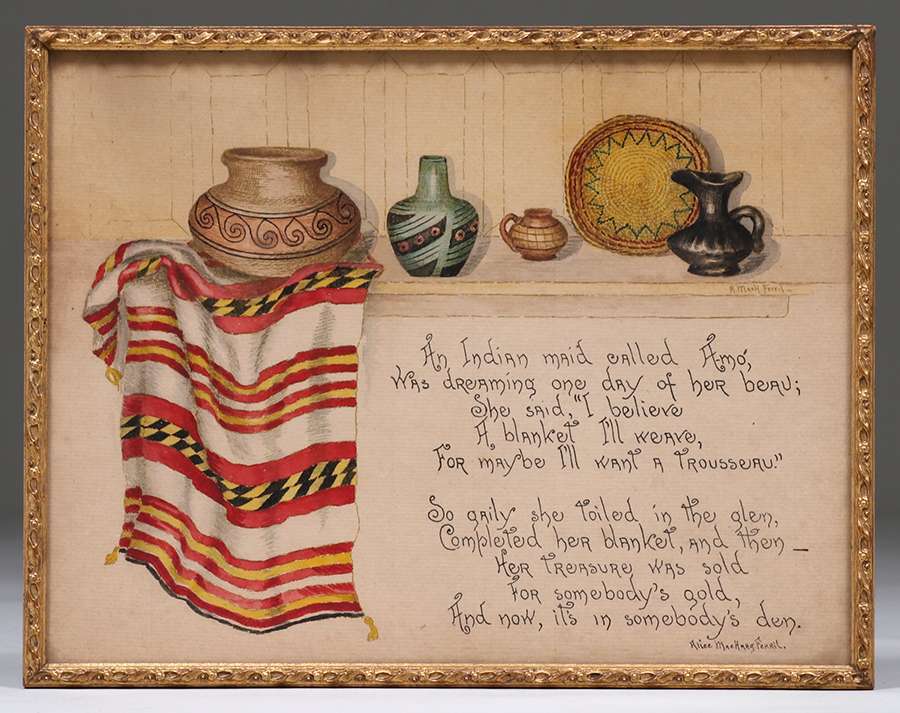 A. MacH. Ferril
An Indian maid called Amó,
Was dreaming one day of her beau;
She said, "I believe
A blanket I'll weave,
For maybe I'll want a trousseau."
So gaily she toiled in the glen,
Completed her blanket, and then —
Her treasure was sold
For somebody's gold,
And now, it's in somebody's den.
Alice MacHarg Ferril.